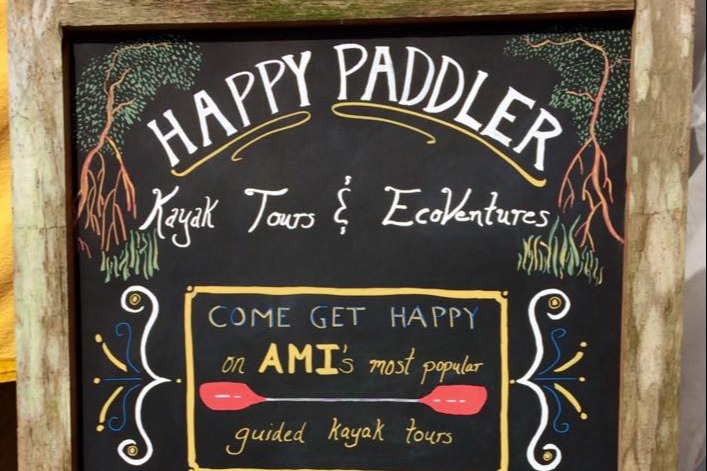 HAPPY PADDLER
Kayak Tours & EcoVentures
COME GET HAPPY
on AMI's most popular
guided kayak tours